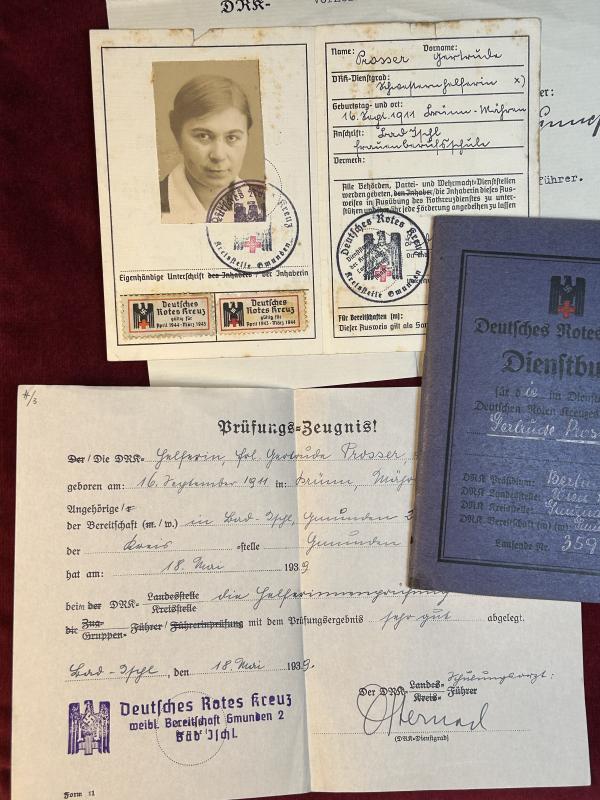 DRK-
Deutsches Rotes Kreuz
Kreisstelle Gmunden
Eigenhändige Unterschrift des Inhabers / der Inhaberin
Deutsches
Rotes Kreuz
gültig für
April 1944-März 1945
Deutsches
Rotes Kreuz
gültig für
April 1943-März 1944
Name: Vorname:
Prosser Gertrude
DRK-Dienstgrad:
Schwesternhelferin x)
Geburtstag- und ort:
16. Sept. 1911 Brünn-Mähren
Anschrift: Bad Ischl
Frauenberufsschule
Vermerk:
Alle Behörden, Partei- und Wehrmacht-Dienststellen
werden gebeten, den Inhaber/die Inhaberin dieses Aus-
weises in Ausübung des Rotkreuzdienstes zu unter-
stützen und ihr jede Förderung angedeihen zu lassen
Deutsches Rotes Kreuz
Kreisstelle Gmunden
Für Bereitschaften (m):
Dieser Ausweis gilt als
er:
führer.
Deutsches Rotes
Dienstbu
für die im Dienst
Deutschen Roten Kreuzes
Gertrude Pros
DRK Präsidium: Berlin
DRK Landesstelle: Wien
DRK Kreisstelle: Gmund
DRK Bereitschaft (m) (w):
Laufende Nr. 359
Prüfungs-Zeugnis!
Der / Die DRK- Helferin, frl. Gertrude Prosser
geboren am: 16. September 1911 in: Brünn, Mähr
Angehörige / r
der Bereitschaft (m. / w.) in Bad-Ischl, Gmunden 2
der Kreis -stelle Gmunden
hat am: 18. Mai 1939
beim der DRK- Landesstelle die Helferinnenprüfung
Kreisstelle
die Zug- Führer / Führerinprüfung mit dem Prüfungsergebnis sehr gut abgelegt.
Gruppen-
Bad-Ischl, den 18. Mai 1939.
Schulungsarzt:
Der DRK- Landes- Führer
Kreis-
(DRK-Dienstgrad)
Deutsches Rotes Kreuz
weibl. Bereitschaft Gmunden 2
Bad Ischl.
Form 11